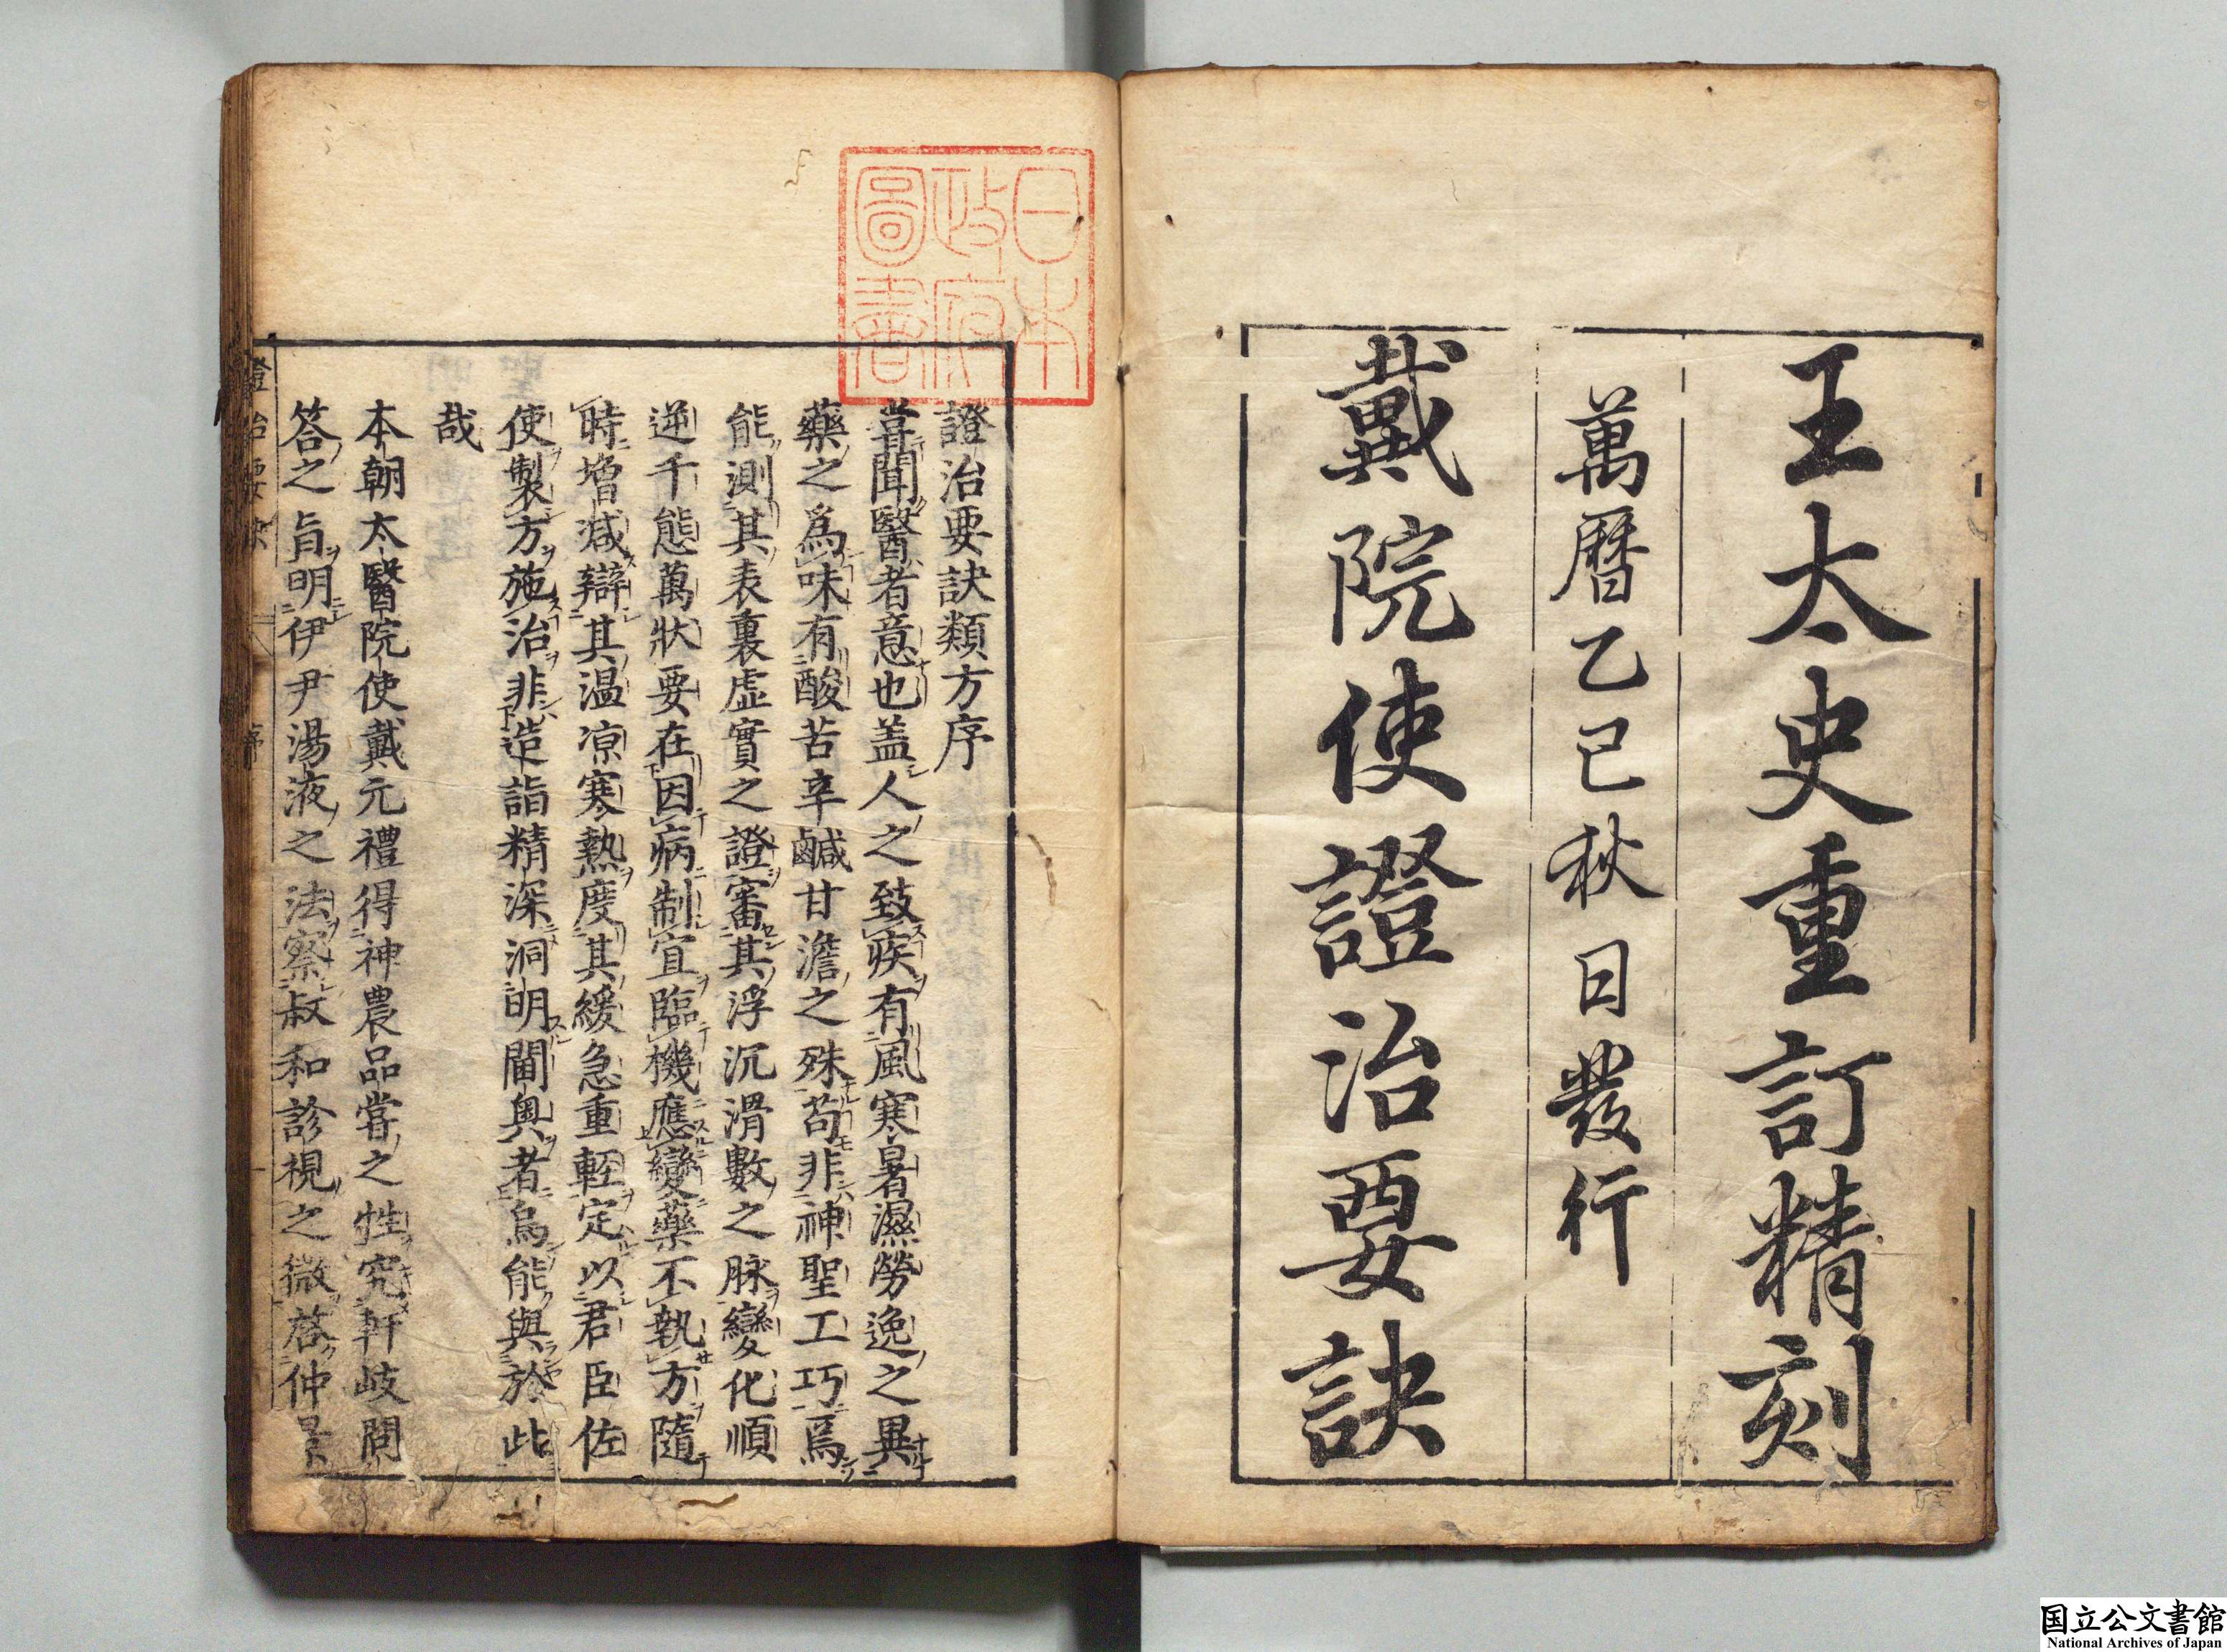 王太史重訂精刻
萬曆乙巳秋日發行
戴院使證治要訣
日本
政府
圖書
證治要訣類方序
嘗聞醫者意也盖人之致疾有風寒暑濕勞逸之異
藥之爲味有酸苦辛鹹甘澹之殊苟非神聖工巧焉
能測其表裏虛實之證審其浮沉滑數之脉變化順
逆千態萬狀要在因病制宜臨機應變藥不執方隨
時增減辯其温凉寒熱度其緩急重輊定以君臣佐
使製方施治非造詣精深洞明閫奥者烏能與於此
哉
本朝太醫院使戴元禮得神農品嘗之性究軒岐問
答之旨明伊尹湯液之法察叔和診視之微啓仲景
證治要訣 序
国立公文書館
National Archives of Japan